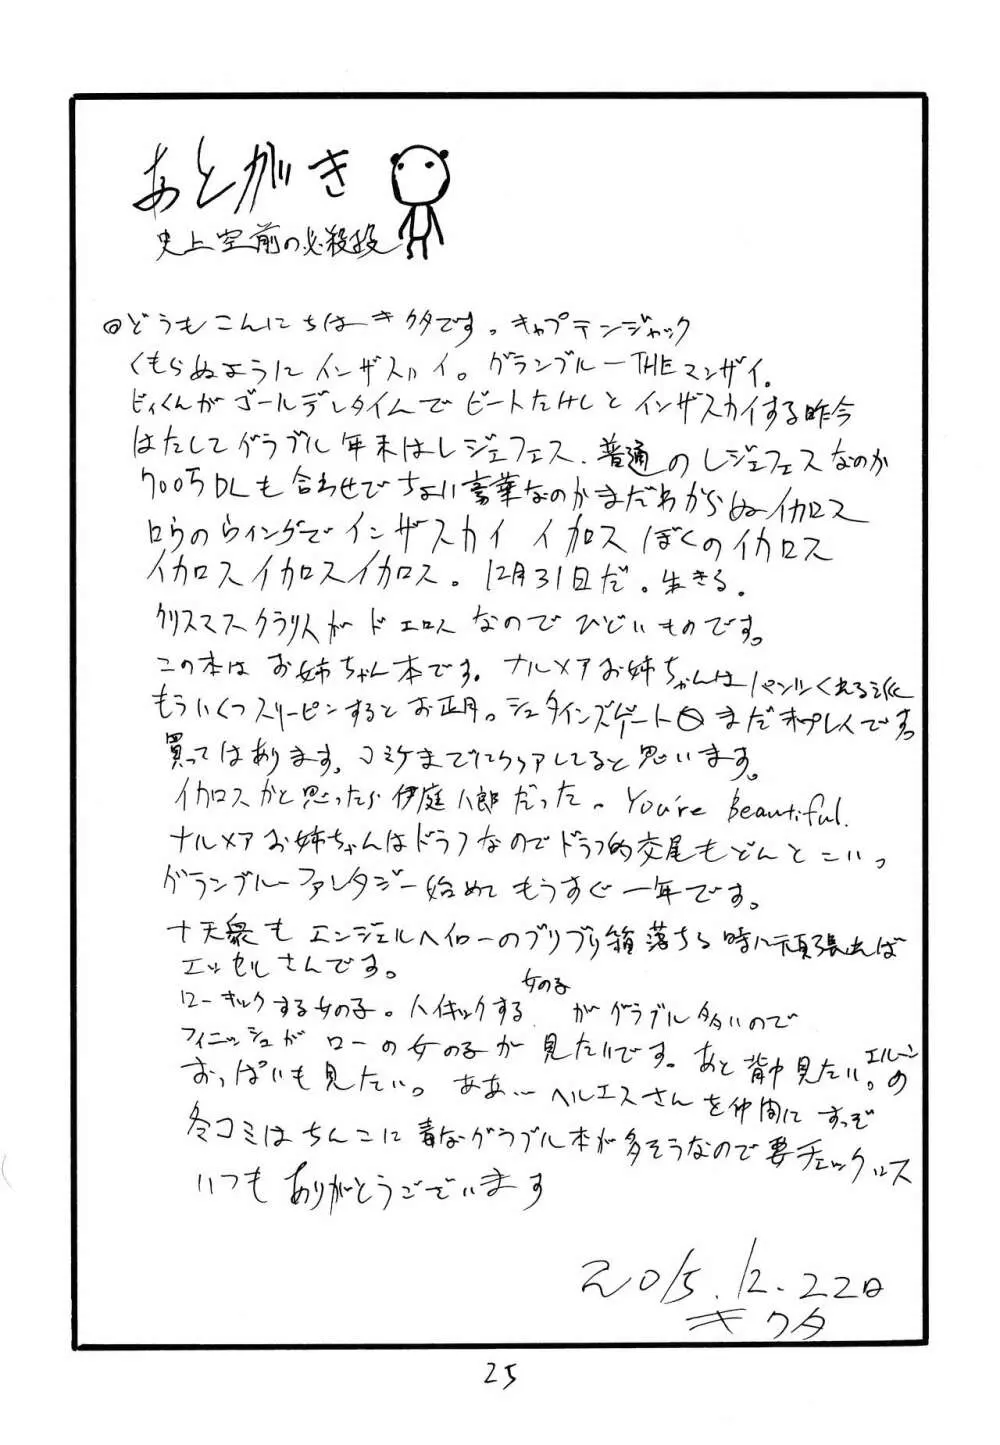 あとがき
史上空前の必殺技
◎どうもこんにちはキクタです。キャプテンジャック
くもらぬようにインザスカイ。グランブルーTHEマンザイ。
ビィくんがゴールデンタイムでビートたけしとインザスカイする昨今
はたしてグラブル年末はレジェフェス、普通のレジェフェスなのか
700万DLも合わせでちょい豪華なのかまだわからぬイカロス
ロウのウィングでインザスカイ イカロス ぼくのイカロス
イカロスイカロスイカロス。12月31日だ。生きる。
クリスマスクラリスがドエロスなのでひどいものです。
この本はお姉ちゃん本です。ナルメアお姉ちゃんはパンツくれる派
もういくつスリーピンするとお正月。シュタインズゲート0まだ未プレイです。
買ってはあります。コミケまでにクリアしてると思います。
イカロスかと思ったら伊庭八郎だった。You're Beautiful.
ナルメアお姉ちゃんはドラフなのでドラフ的交尾もどんとこいっ
グランブルーファンタジー始めてもうすぐ一年です。
十天衆もエンジェルヘイローのブリブリ箱落ちる時に頑張れば
エッセルさんです。
ローキックする女の子。ハイキックする女の子がグラブル多いので
フィニッシュがローの女の子が見たいです。あと背中見たい。エルーンの
おっぱいも見たい。ああ…ヘルエスさんを仲間にすっぞ
冬コミはちんこに毒なグラブル本が多そうなので要チェックロス
いつもありがとうございます
2015.12.22日
キクタ
25